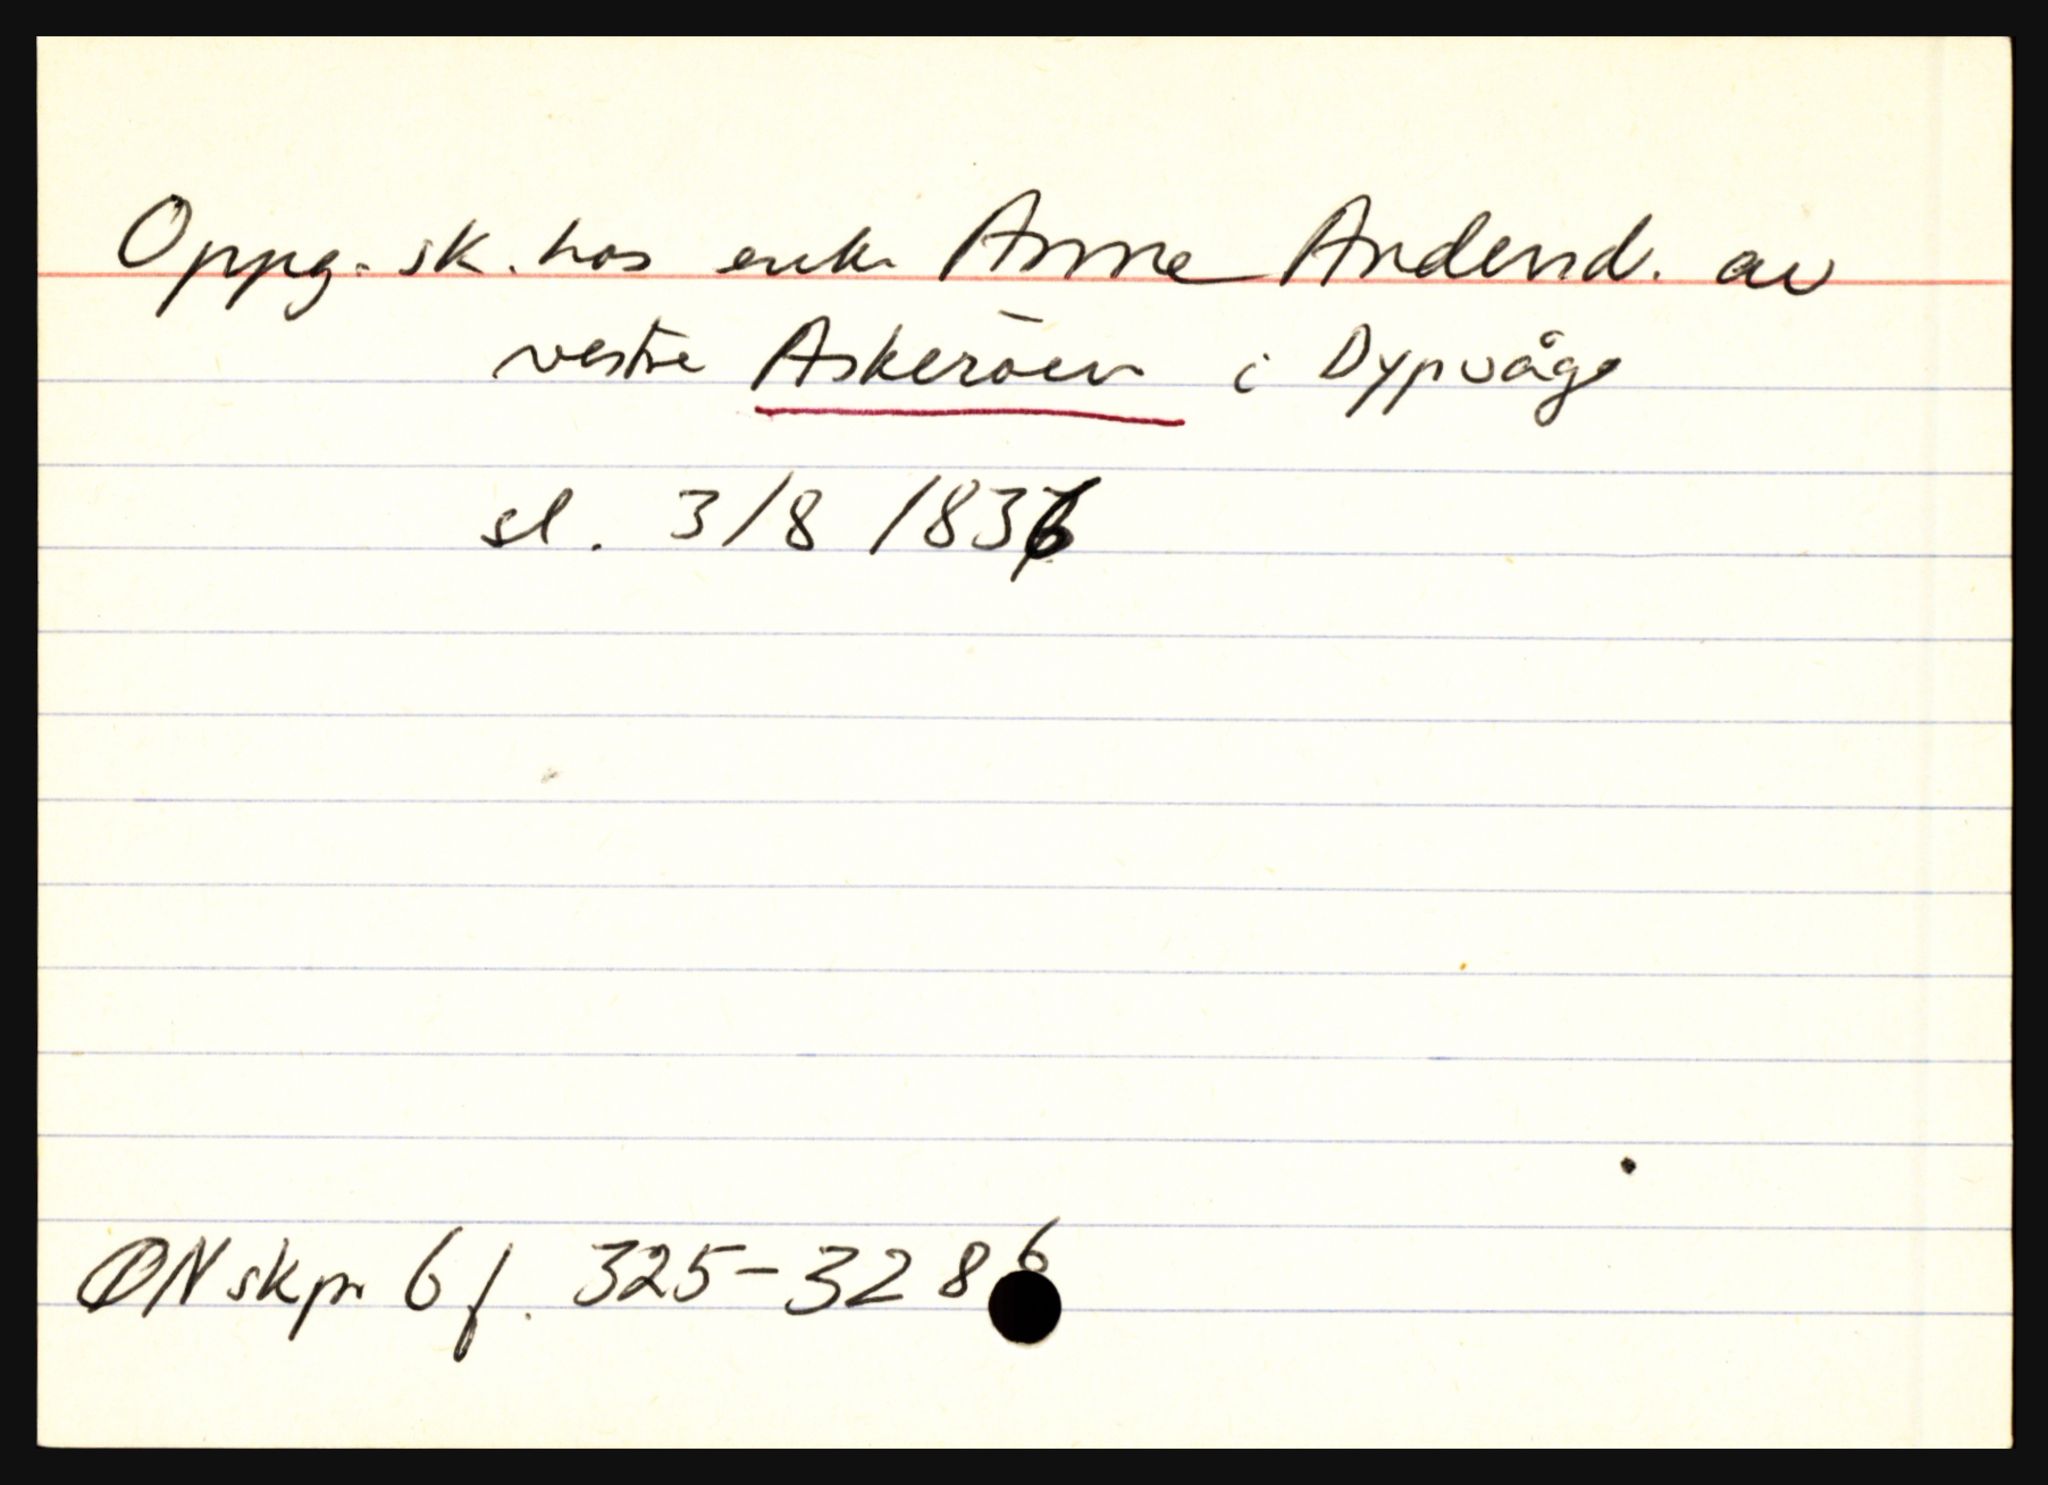 Oppg. sk. hos enke Anne Andersd. av
vestre Askerōen i Dypvåge
sl. 3/8 1836
ØN skpr 6 f. 325-328 6